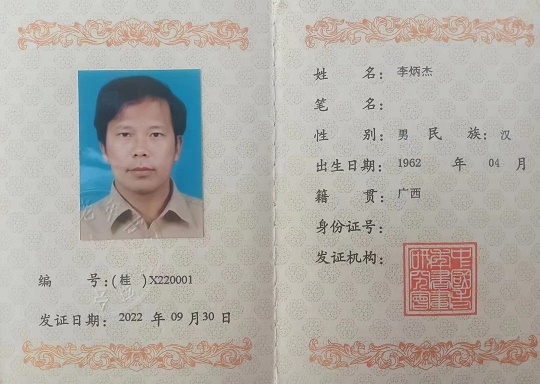 编 号：(桂 )X220001
发证日期：2022 年 09 月 30 日
姓 名：李炳杰
笔 名：
性 别：男 民 族：汉
出生日期：1962 年 04 月
籍 贯：广西
身份证号：
发证机构：